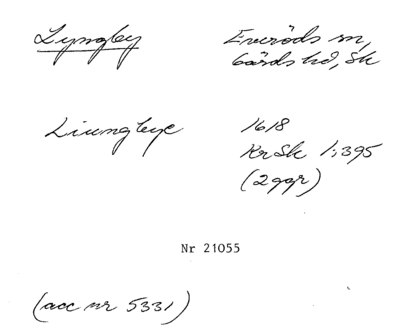 Lyngby Everöds sn,
Gärds hd, Sk
Liungbye 1618
KrSk 1:395
(2 ggr)
Nr 21055
(acc nr 5331)